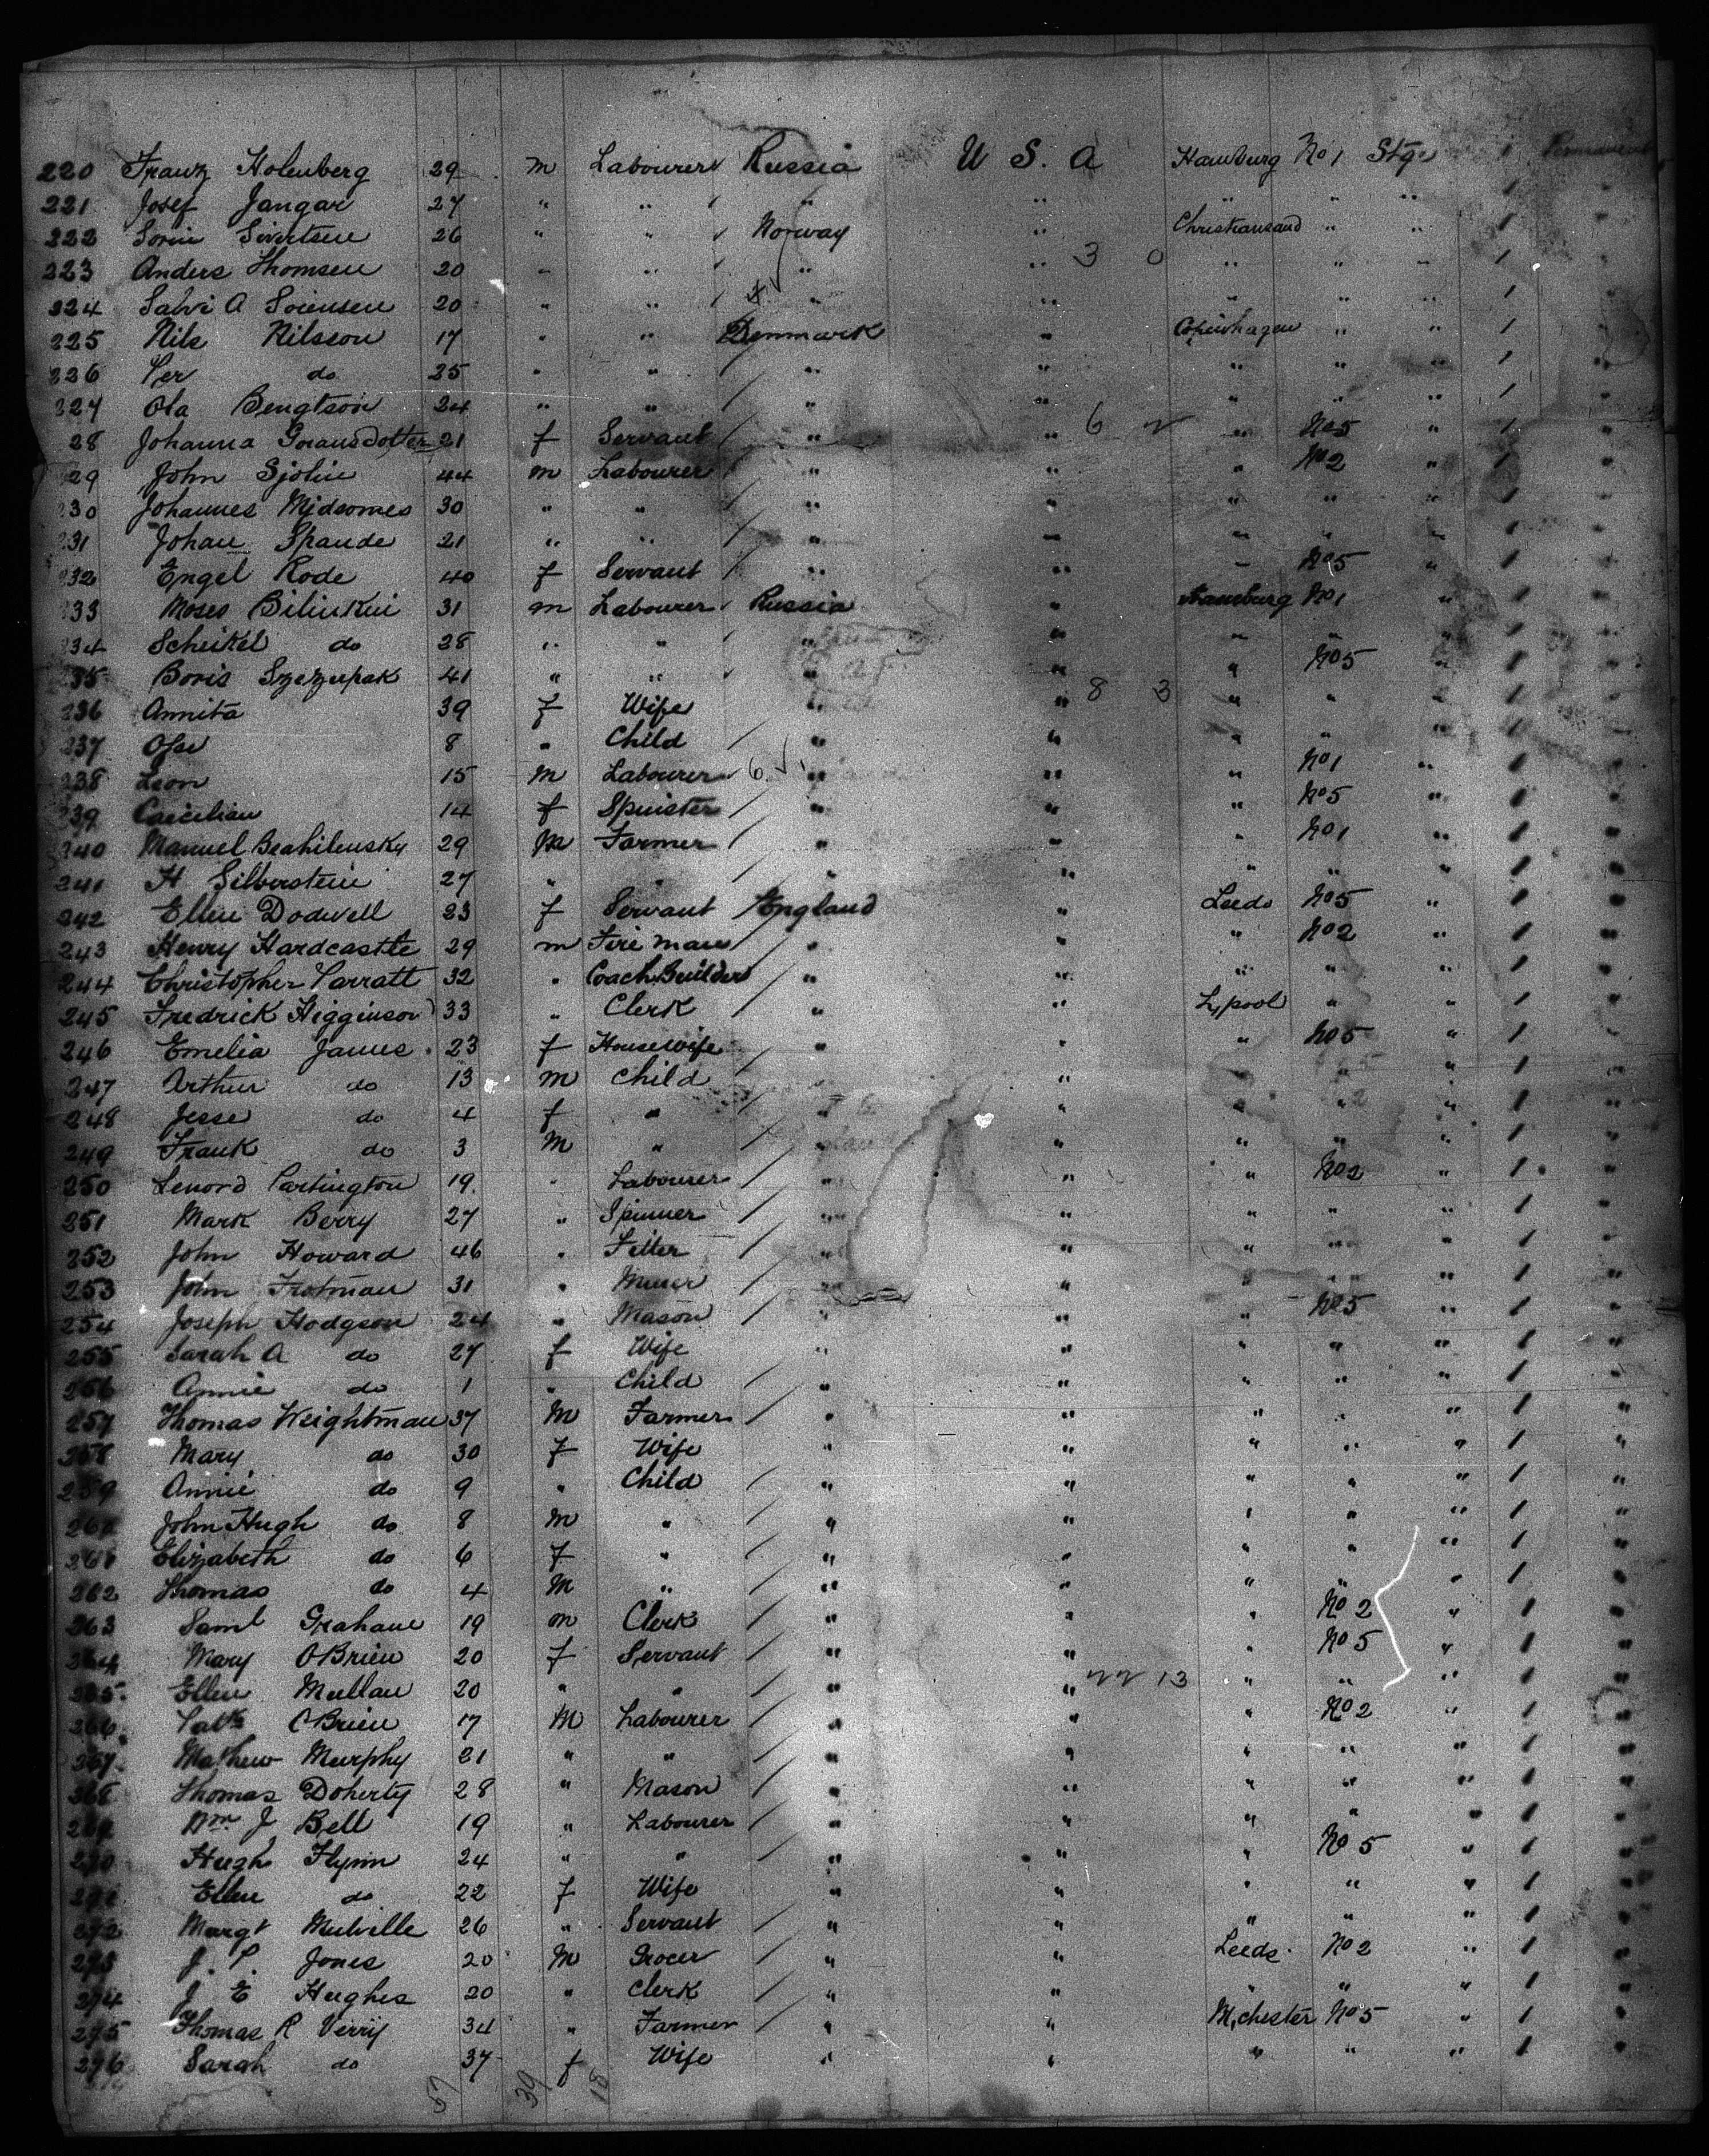 220 Franz Holenberg 29 m Labourer Russia U S. A Hamburg No 1 Stge 1 Permanent
221 Josef Jangar 27 " " " " " " " 1 "
222 Sorin Sivertsen 26 " " Norway " Christiansand " " 1 "
223 Anders Thomsen 20 " " " " 3 0 " " " 1 "
224 Salvi A Sorensen 20 " " " " " " " 1 "
225 Nils Nilsson 17 " " Denmark " Copenhagen " " 1 "
226 Per do 25 " " " " " " " 1 "
227 Ola Bengtson 24 " " " " " " " 1 "
28 Johanna Goransdotter 21 f Servant " " 6 2 " No 5 " 1 "
29 John Sjolin 44 m Labourer " " " No 2 " 1 "
230 Johannes Midsomes 30 " " " " " " " 1 "
231 Johan Spande 21 " " " " " " " 1 "
232 Engel Rode 40 f Servant " " " No 5 " 1 "
233 Moses Bilinkin 31 m Labourer Russia " Hamburg No 1 " 1 "
234 Scheikel do 28 " " " " " " " 1 "
235 Boris Szezupak 41 " " " " " No 5 " 1 "
236 Annita 39 f Wife " " 8 3 " " " 1 "
237 8 " Child " " " " " 1 "
238 Leon 15 m Labourer 6 " " " No 1 " 1 "
239 Caicilian 14 f Spinster " " " No 5 " 1 "
240 Manuel Brahilensky 29 M Farmer " " " No 1 " 1 "
241 H Silberstein 27 " " " " " " " 1 "
242 Ellen Dodwell 23 f Servant England " Leeds No 5 " 1 "
243 Henry Hardcastle 29 m Fire man " " " No 2 " 1 "
244 Christopher Parratt 32 " Coach Builder " " " " " 1 "
245 Fredrick Higginson 33 " Clerk " " L,pool " " 1 "
246 Emelia James 23 f Housewife " " " No 5 " 1 "
247 Arthur do 13 m Child " " " " " 1 "
248 Jesse do 4 f " " " " " " 1 "
249 Frank do 3 M " " " " " " 1 "
250 Lenord Partington 19 " Labourer " " " No 2 " 1 "
251 Mark Berry 27 " Spinner " " " " " 1 "
252 John Howard 46 " Fitter " " " " " 1 "
253 John Trotman 31 " Miner " " " " " 1 "
254 Joseph Hodgson 24 " Mason " " " No 5 " 1 "
255 Sarah A do 27 f Wife " " " " " 1 "
256 Annie do 1 " Child " " " " " 1 "
257 Thomas Weightman 37 M Farmer " " " " " 1 "
258 Mary do 30 f Wife " " " " " 1 "
259 Annie do 9 " Child " " " " " 1 "
260 John Hugh do 8 M " " " " " " 1 "
261 Elizabeth do 6 f " " " " " " 1 "
262 Thomas do 4 M " " " " " " 1 "
263 Saml Graham 19 m Clerk " " " No 2 " 1 "
264 Mary OBrien 20 f Servant " " " No 5 " 1 "
265 Ellen Mullan 20 " " " " 22 13 " " " 1 "
266 Patk OBrien 17 M Labourer " " " No 2 " 1 "
267 Mathew Murphy 21 " " " " " " " 1 "
268 Thomas Doherty 28 " Mason " " " " " 1 "
269 Wm J Bell 19 " Labourer " " " " " 1 "
270 Hugh Flynn 24 " " " " " No 5 " 1 "
271 Ellen do 22 f Wife " " " " " 1 "
272 Margt Mulville 26 " Servant " " " " " 1 "
273 J. P. Jones 20 M Grocer " " Leeds No 2 " 1 "
274 J E Hughes 20 " Clerk " " " " " 1 "
275 Thomas R Verry 34 " Farmer " " M,chester No 5 " 1 "
276 Sarah do 37 f Wife " " " " " 1 "
57 39 18